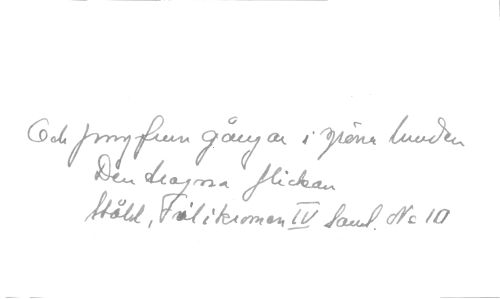 Och jungfrun gångar i gröna lunden
Den trogna flickan
Ståhl, IV Saml. No 10